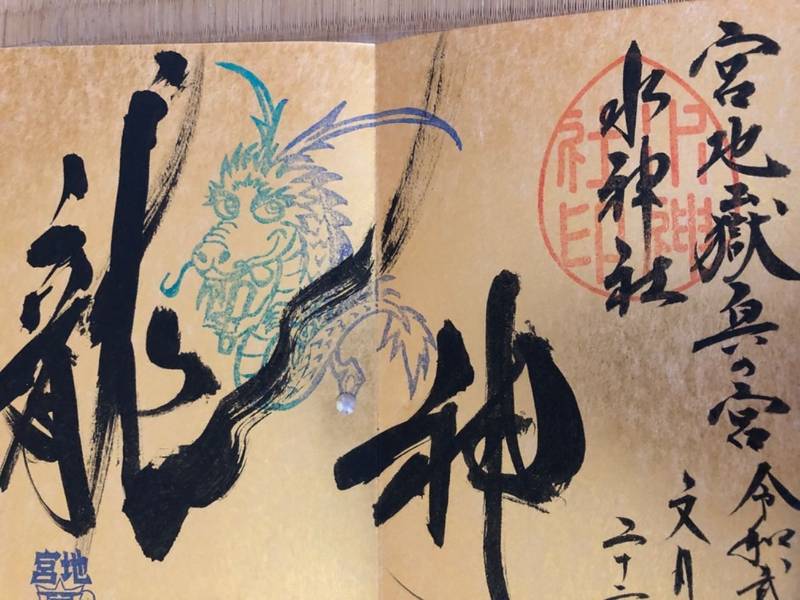 宮地嶽奥の宮
令和弐
水神社
文月
二十
水神社印
龍神
宮地